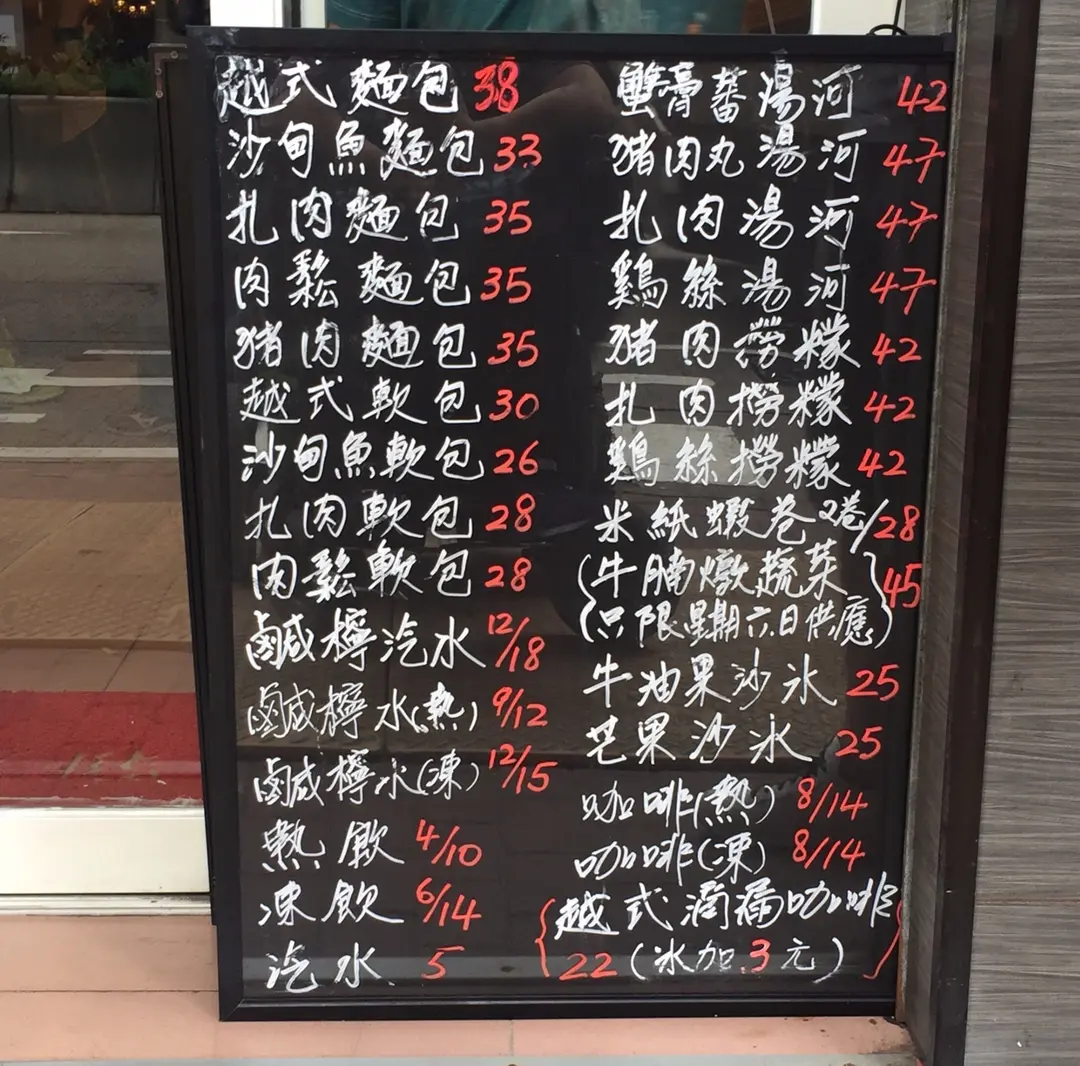 越式麵包 38
沙甸魚麵包 33
扎肉麵包 35
肉鬆麵包 35
猪肉麵包 35
越式軟包 30
沙甸魚軟包 26
扎肉軟包 28
肉鬆軟包 28
鹹檸汽水 12/18
鹹檸水(熱) 9/12
鹹檸水(凍) 12/15
熱飲 4/10
凍飲 6/14
汽水 5
蟹膏蕃湯河 42
猪肉丸湯河 47
扎肉湯河 47
鷄絲湯河 47
猪肉撈檬 42
扎肉撈檬 42
鷄絲撈檬 42
米紙蝦卷 2卷/28
(牛腩燉蔬菜 45
(只限星期六日供應)
牛油果沙氷 25
芒果沙氷 25
咖啡(熱) 8/14
咖啡(凍) 8/14
越式滴漏咖啡
22 (氷加3元)